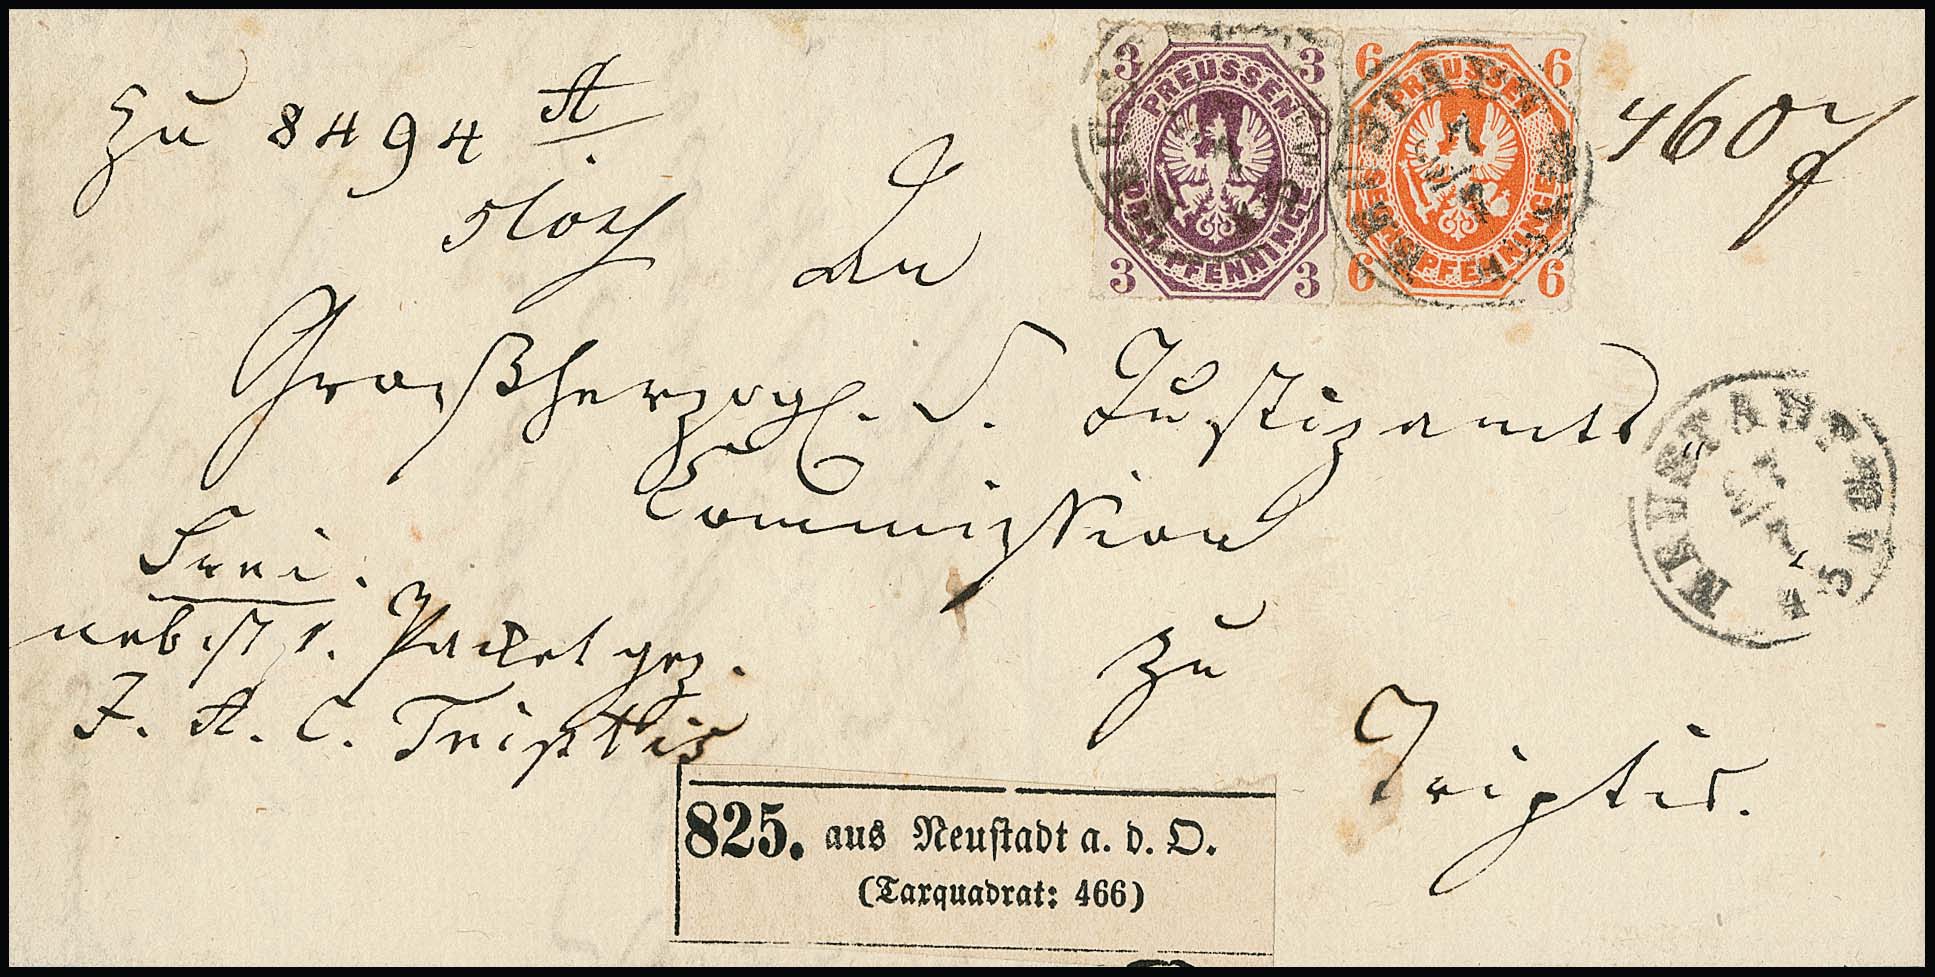 Zu 8494 A
An
Großherzogl. S. Justizamts
Commission
zu
Triptis.
Frei.
nebst 1. Packet gez.
J. A. C. Triptis
3 3
PREUSSEN
DREI PFENNINGE
3 3
6 6
PREUSSEN
SECHS PFENNINGE
6 6
NEUSTADT
NEUSTADT
825. aus Neustadt a. d. O.
(Taxquadrat: 466)